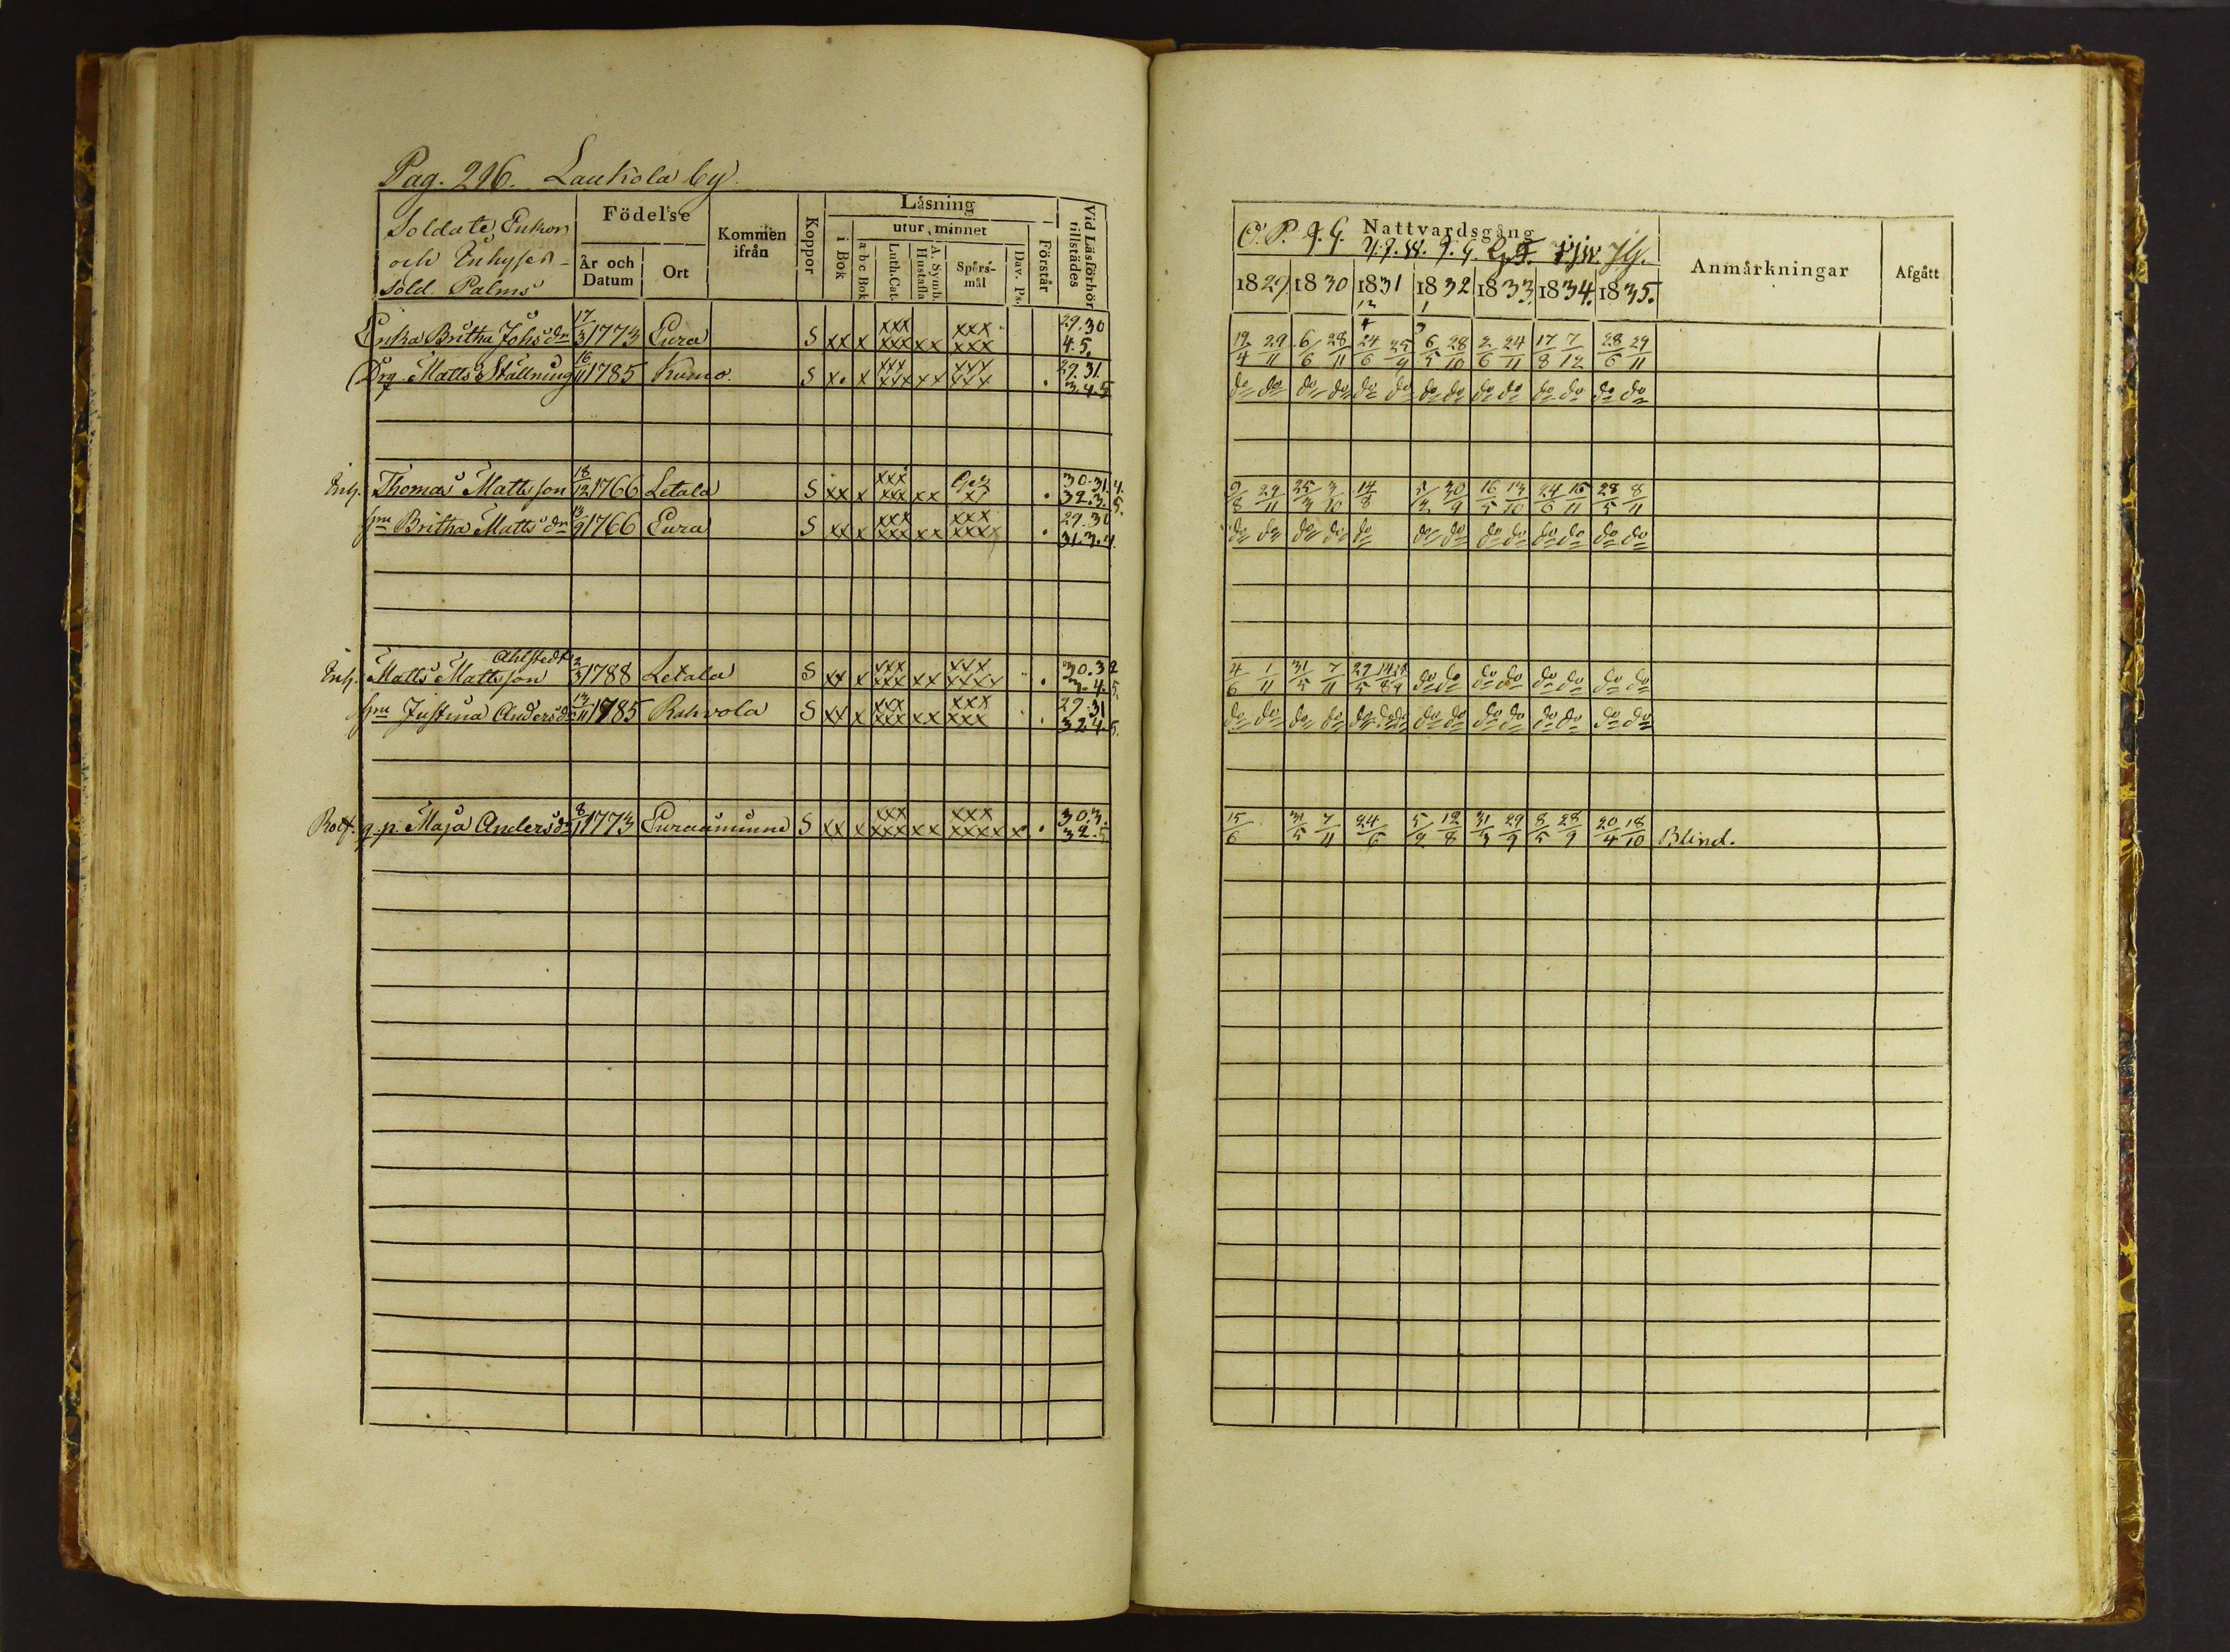 Pag. 296. Laukola by.
Soldate, Enkor
och Inhyses-
Sold. Palms
Födelse
År och Datum
Ort
Kommen ifrån
Koppor
Läsning
i Bok
utur minnet
a b c Bok
Luth. Cat.
A. Symb. Hustafla
Spörs-mål
Dav. Ps.
Förstår
Vid Läsförhör tillstädes
Nattvardsgång
1829. 1830 1831 1832 1833. 1834. 1835.
Anmärkningar
Afgått
Enka Britha Johsdr 17/3 1773 Eura S xx x xxx xxx xx xxx xxx 29.30 4.5. 19/4 29/11 6/6 28/11 24/6 25/9 6/5 28/10 2/6 24/11 17/8 7/12 28/6 29/11
Drg. Matts Ställning 16/11 1785 Kumo. S x. x xxx xxx xx xxx xxx . 29.31. 3.4.5 do do do do do do do do do do do do do do
Inh. Thomas Mattsson 18/12 1766 Letala S xx x xxx xxx xx . 30.31.4. 32.3.5. 9/8 29/11 25/3 3/10 14/8 5/2 30/9 16/5 13/10 24/6 16/11 28/5 8/11
Hru Britha Mattsdr 13/9 1766 Eura S xx x xxx xxx xx xxx xxx . 29.30 31.3.4. do do do do do do do do do do do do do
Ahlstedt
Inh. Matts Mattsson 2/3 1788 Letala S xx x xxx xxx xx xxx xxxx . 30.32 3.4.5. 4/6 1/11 31/5 7/11 29/5 14/8 do do do do do do do do
Hru Justina Andersdr 13/11 1785 Rahvola S xx x xxx xxx xx xxx xxx . 29.31 324.5. do do do do do do do do do do do do do do do
Rotf. q.p. Maja Andersdr 8/11 1773 Euraåminne S xx x xxx xxx xx xxx xxxx x . 30.3. 32.5. 15/6 31/5 7/11 24/6 5/2 12/8 31/3 29/9 8/5 28/9 20/4 18/10 Blind.